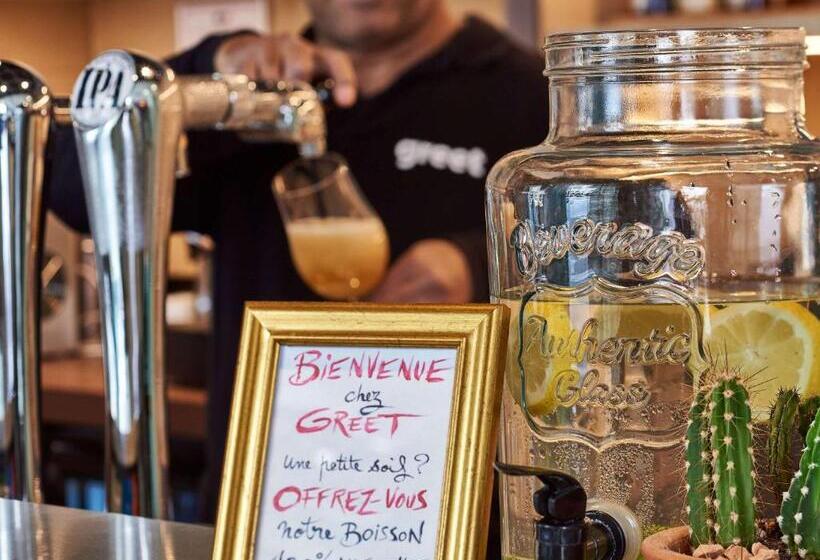 IPA
greet
Beverage
Authentic
Glass
BIENVENUE
chez
GREET
Une petite soif ?
OFFREZ-VOUS
notre BOISSON